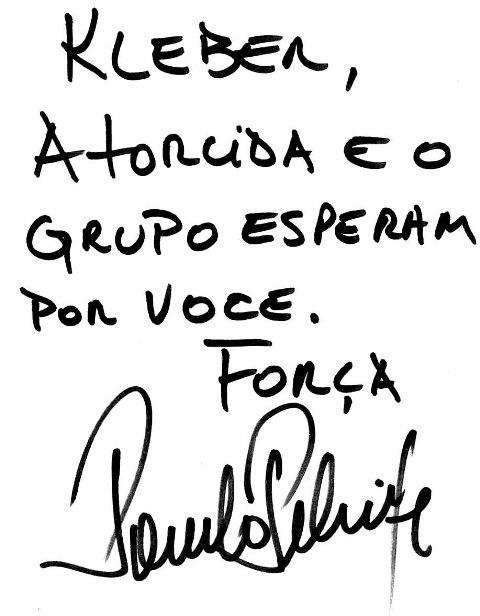 KLEBER,
A TORCIDA E O
GRUPO ESPERAM
POR VOCE.
FORÇA
Paulo Pelaipe